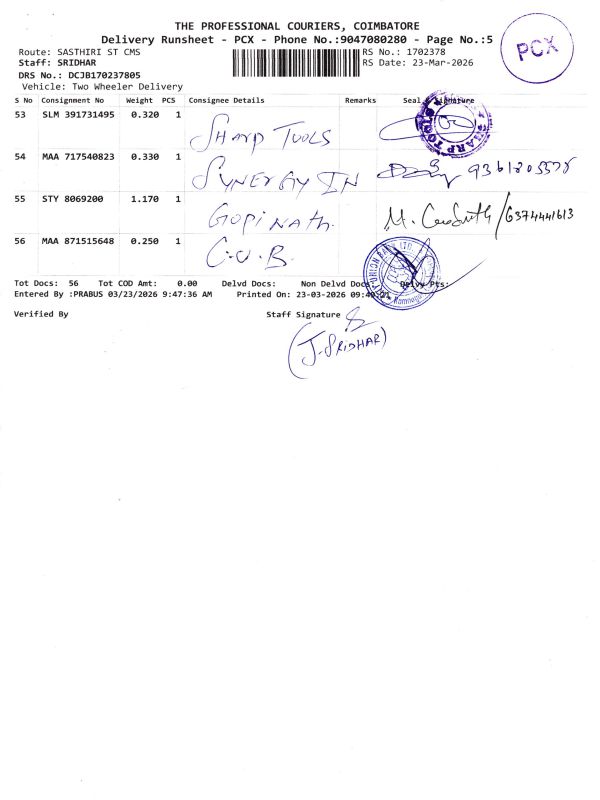 THE PROFESSIONAL COURIERS, COIMBATORE
Delivery Runsheet - PCX - Phone No.:9047080280 - Page No.:5
PCX
Route: SASTHIRI ST CMS
RS No.: 1702378
Staff: SRIDHAR
RS Date: 23-Mar-2026
DRS No.: DCJB170237805
Vehicle: Two Wheeler Delivery
S No Consignment No Weight PCS Consignee Details Remarks Seal Signature
53 SLM 391731495 0.320 1 SHARP TOOLS
SHARP TOOLS
54 MAA 717540823 0.330 1 SYNERGY IN 9361805578
55 STY 8069200 1.170 1 GOPINATH. M. /6374441613
56 MAA 871515648 0.250 1 C.U.B.
UNION BANK LTD.
Tot Docs: 56 Tot COD Amt: 0.00 Delvd Docs: Non Delvd Docs Delvy Pts:
Entered By :PRABUS 03/23/2026 9:47:36 AM Printed On: 23-03-2026 09:49:21
Verified By Staff Signature
(J.SRIDHAR)